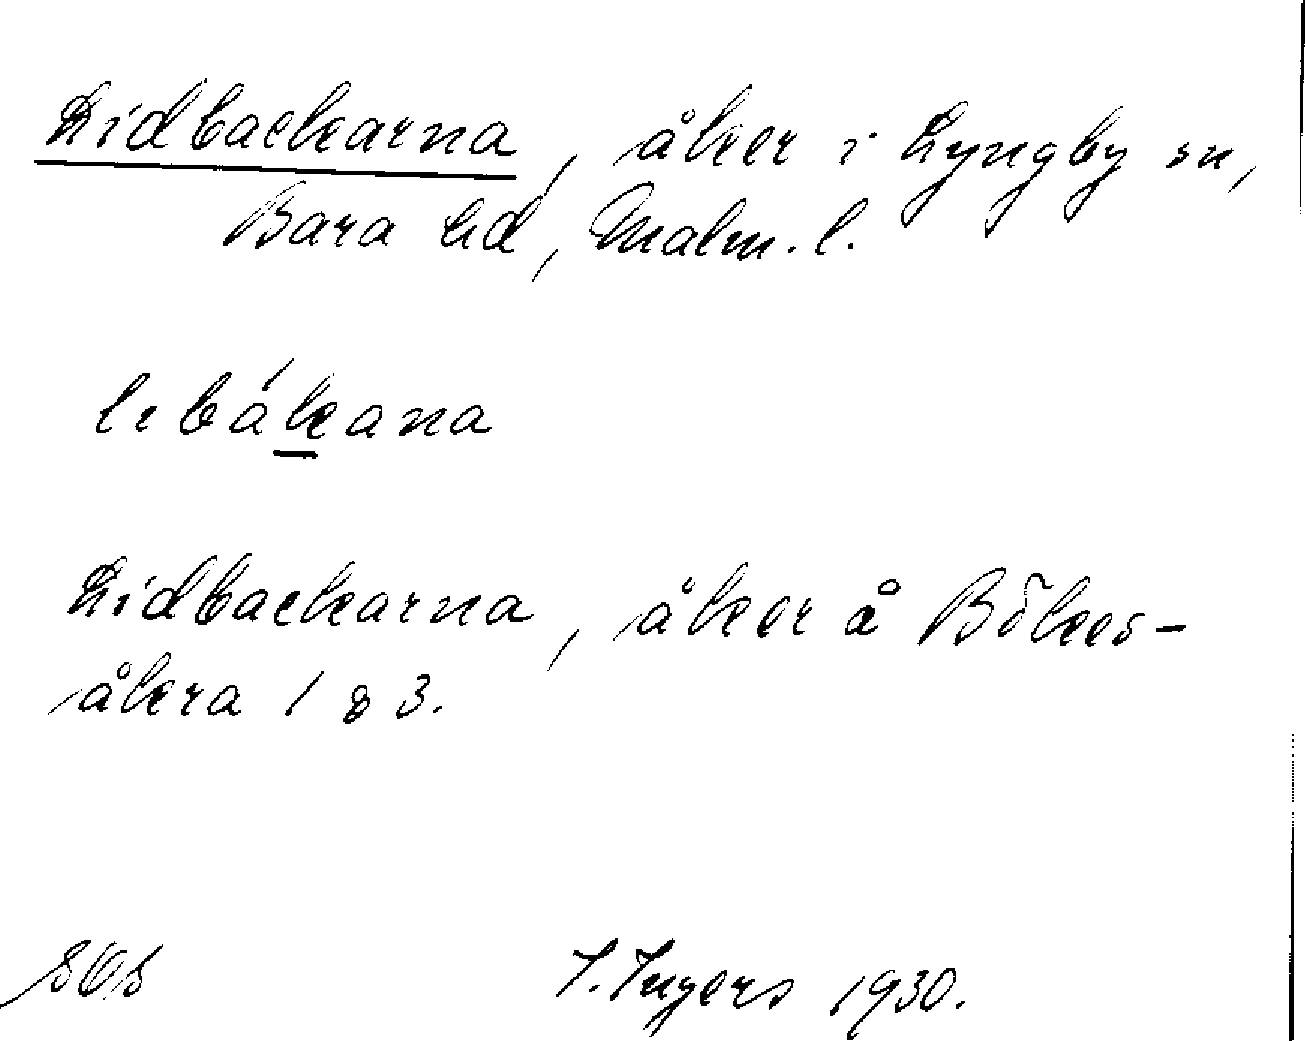 Lidbackarna, åker i Lyngby sn,
Bara hd, Malm. l.
lebákana
Lidbackarna, åker å Bökes-
åkra 1 o 3.
I. Ingers 1930.